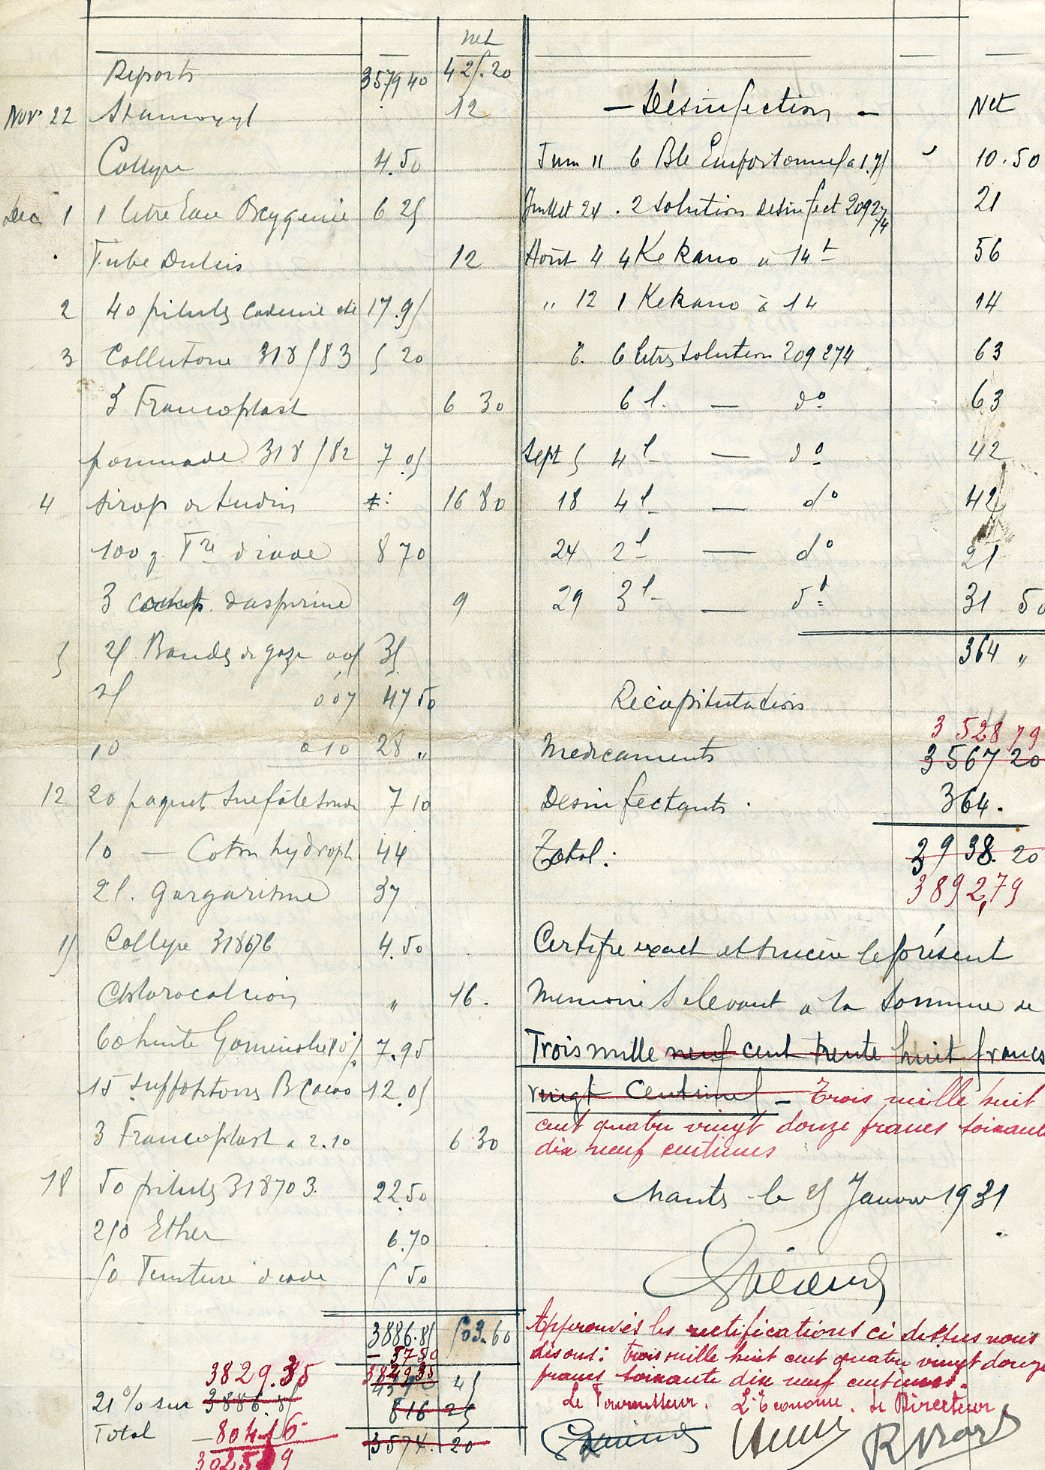 Net
Reports 3579 40 425.20
Nov. 22 12
Collyre 4.50
Dec 1 1 litre Eau Oxygenée 6 25
Tube Dulcis 12
2 40 pilules 17.95
3 Collutoire 318583 5 20
3 Francoplast 6 30
pommade 318582 7.05
4 Sirop 16 80
100 g Tre d'iode 8 70
3 d'aspirine 9
5 25 Bandes de gaze 35
25 à 0,7 47 50
10 à 10 28 "
12 20 paquet Sulfate Soude 7 10
10 — Coton hydroph 44
2 l. Gargarisme 37
15 Collyre 318676 4.50
Chlorocalcion " 16.
60 huile Goménolée 7.95
15 Suppositoires B Cacao 12.05
3 Francoplast à 2.10 6 30
18 50 pilules 318703 22.50
250 Ether 6.70
50 Teinture d'iode 5 50
3886.85 503.60
- 57 50
3829.35
3829.35 45
21% sur 3886.85 816 25
Total - 804.16 3574. 20
— Désinfection — Net
Juin 11 6 Ble à 1.75 10.50
Juillet 24 . 2 solution desinfect 209274 21
Août 4 4 Kekano à 14 56
" 12 1 Kekano à 14 14
6 litres solution 209274 63
6 l. — do 63
Sept 5 4 l — do 42
18 4 l — do 42
24 2 l — do 21
29 3 l — do 31.50
364 "
Récapitulation
3 528 79
Medicaments 3567 20
Desinfectants. 364.
Total: 3938. 20
3892,79
Certifié exact et sincère le présent
Memoire s'elevant à la somme de
Trois mille neuf cent trente huit francs
vingt centimes — Trois mille huit
cent quatre vingt douze francs soixante
dix neuf centimes
Nantes le 25 Janvier 1931
Approuvés les rectifications ci dessus nous
disons: Trois mille huit cent quatre vingt douze
francs soixante dix neuf centimes.
Le Fournisseur. L'Econome. Le Directeur